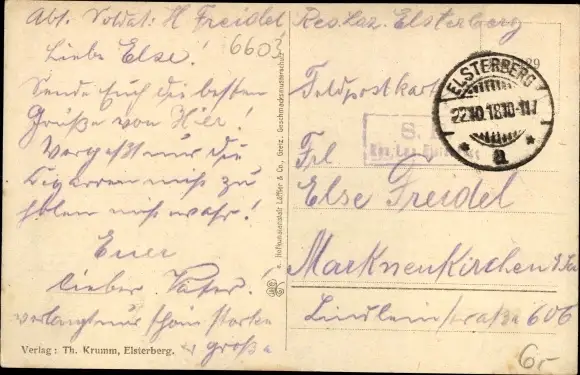 Abs. Soldat: H Freidel Res. Laz. Elsterberg
6603
Liebe Else!
Sende Euch die besten
Grüße von Hier!
Vergeßt nur die
Cigarren nicht zu
holen nicht wahr!
Euer
lieber Vater!
verlangt nur schöne starke
große
Verlag: Th. Krumm, Elsterberg.
Hofkunstanstalt Löffler & Co., Greiz. Geschmacksmusterschutz
Feldpostkarte
ELSTERBERG
22.10.18.10-11V
a
S. B.
Res. Laz. Elsterberg
Frl
Else Freidel
Markneukirchen i. Sa
Lindleinstraße 606
6.-